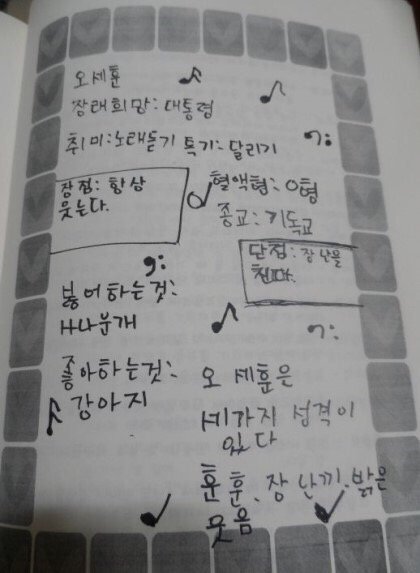 오세훈
장래희망:대통령
취미:노래듣기 특기:달리기
장점: 항상
웃는다.
혈액형: O형
종교: 기독교
단점: 장난을
친다.
싫어하는것:
바나분개
좋아하는것:
강아지
오 세훈은
세가지 성격이
있다
훈훈, 장난끼, 밝은
웃음